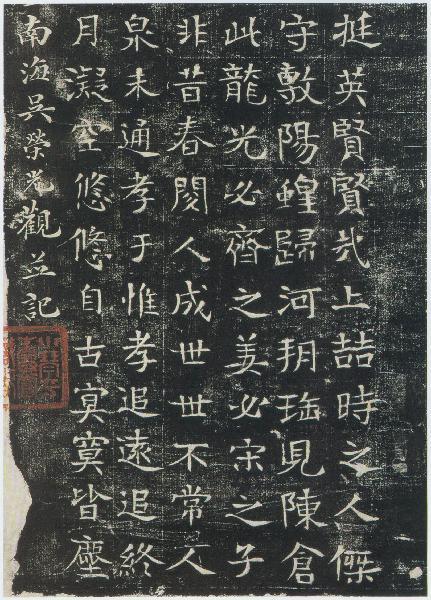 挺英賢賢哉上喆時之人傑
守敷陽蝗歸河朔珤見陳倉
此龍光必齊之姜必宋之子
非昔春閱人成世世不常人
泉未通孝于惟孝追遠追終
月凝空悠悠自古冥寞皆塵
南海吳榮光觀並記